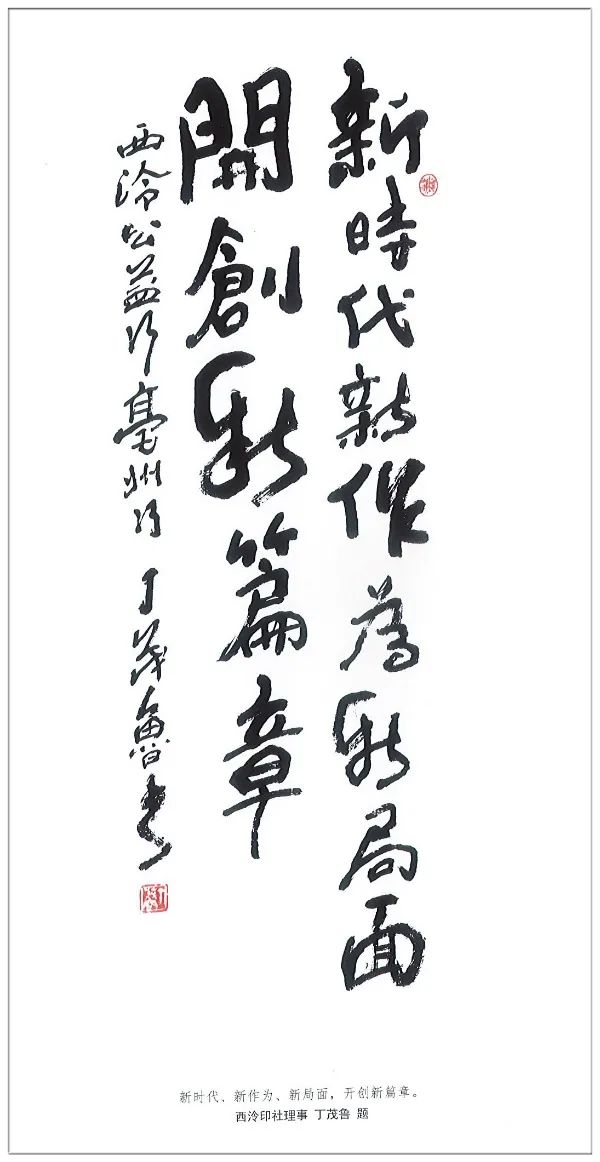 新時代新作為新局面
開創新篇章
西泠公益行亳州行 丁茂魯书
新时代、新作为、新局面，开创新篇章。
西泠印社理事 丁茂鲁 题